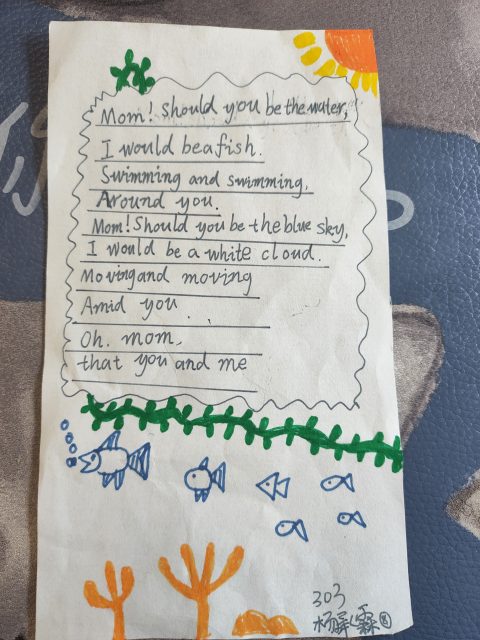 Mom! Should you be the water,
I would be a fish.
Swimming and swimming,
Around you.
Mom! Should you be the blue sky,
I would be a white cloud.
Moving and moving
Amid you.
Oh. mom,
that you and me
303